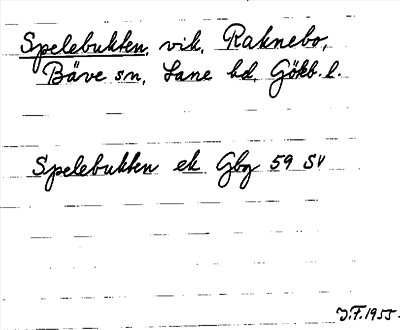 Spelebukten, vik, Raknebo,
Bäve sn, Lane hd, Gökb. l.
Spelebukten ek Gbg 59 SV
J.F. 1955.